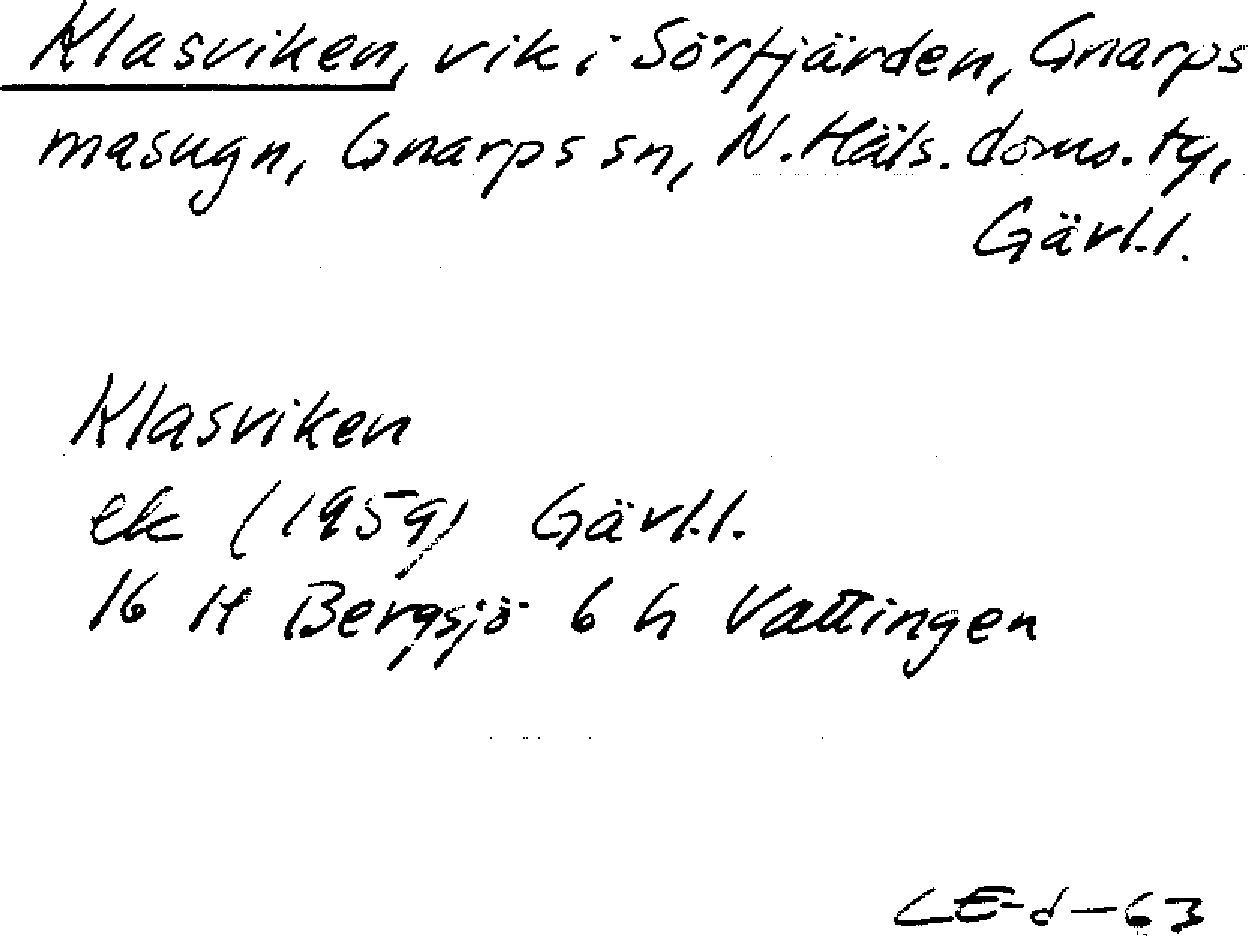 Klasviken, vik i Sörfjärden, Gnarps
masugn, Gnarps sn, N. Häls. doms. ty,
Gävl.l.
Klasviken
ek (1959) Gävl.l.
16 H Bergsjö 6 h Vattingen
LE-d-63